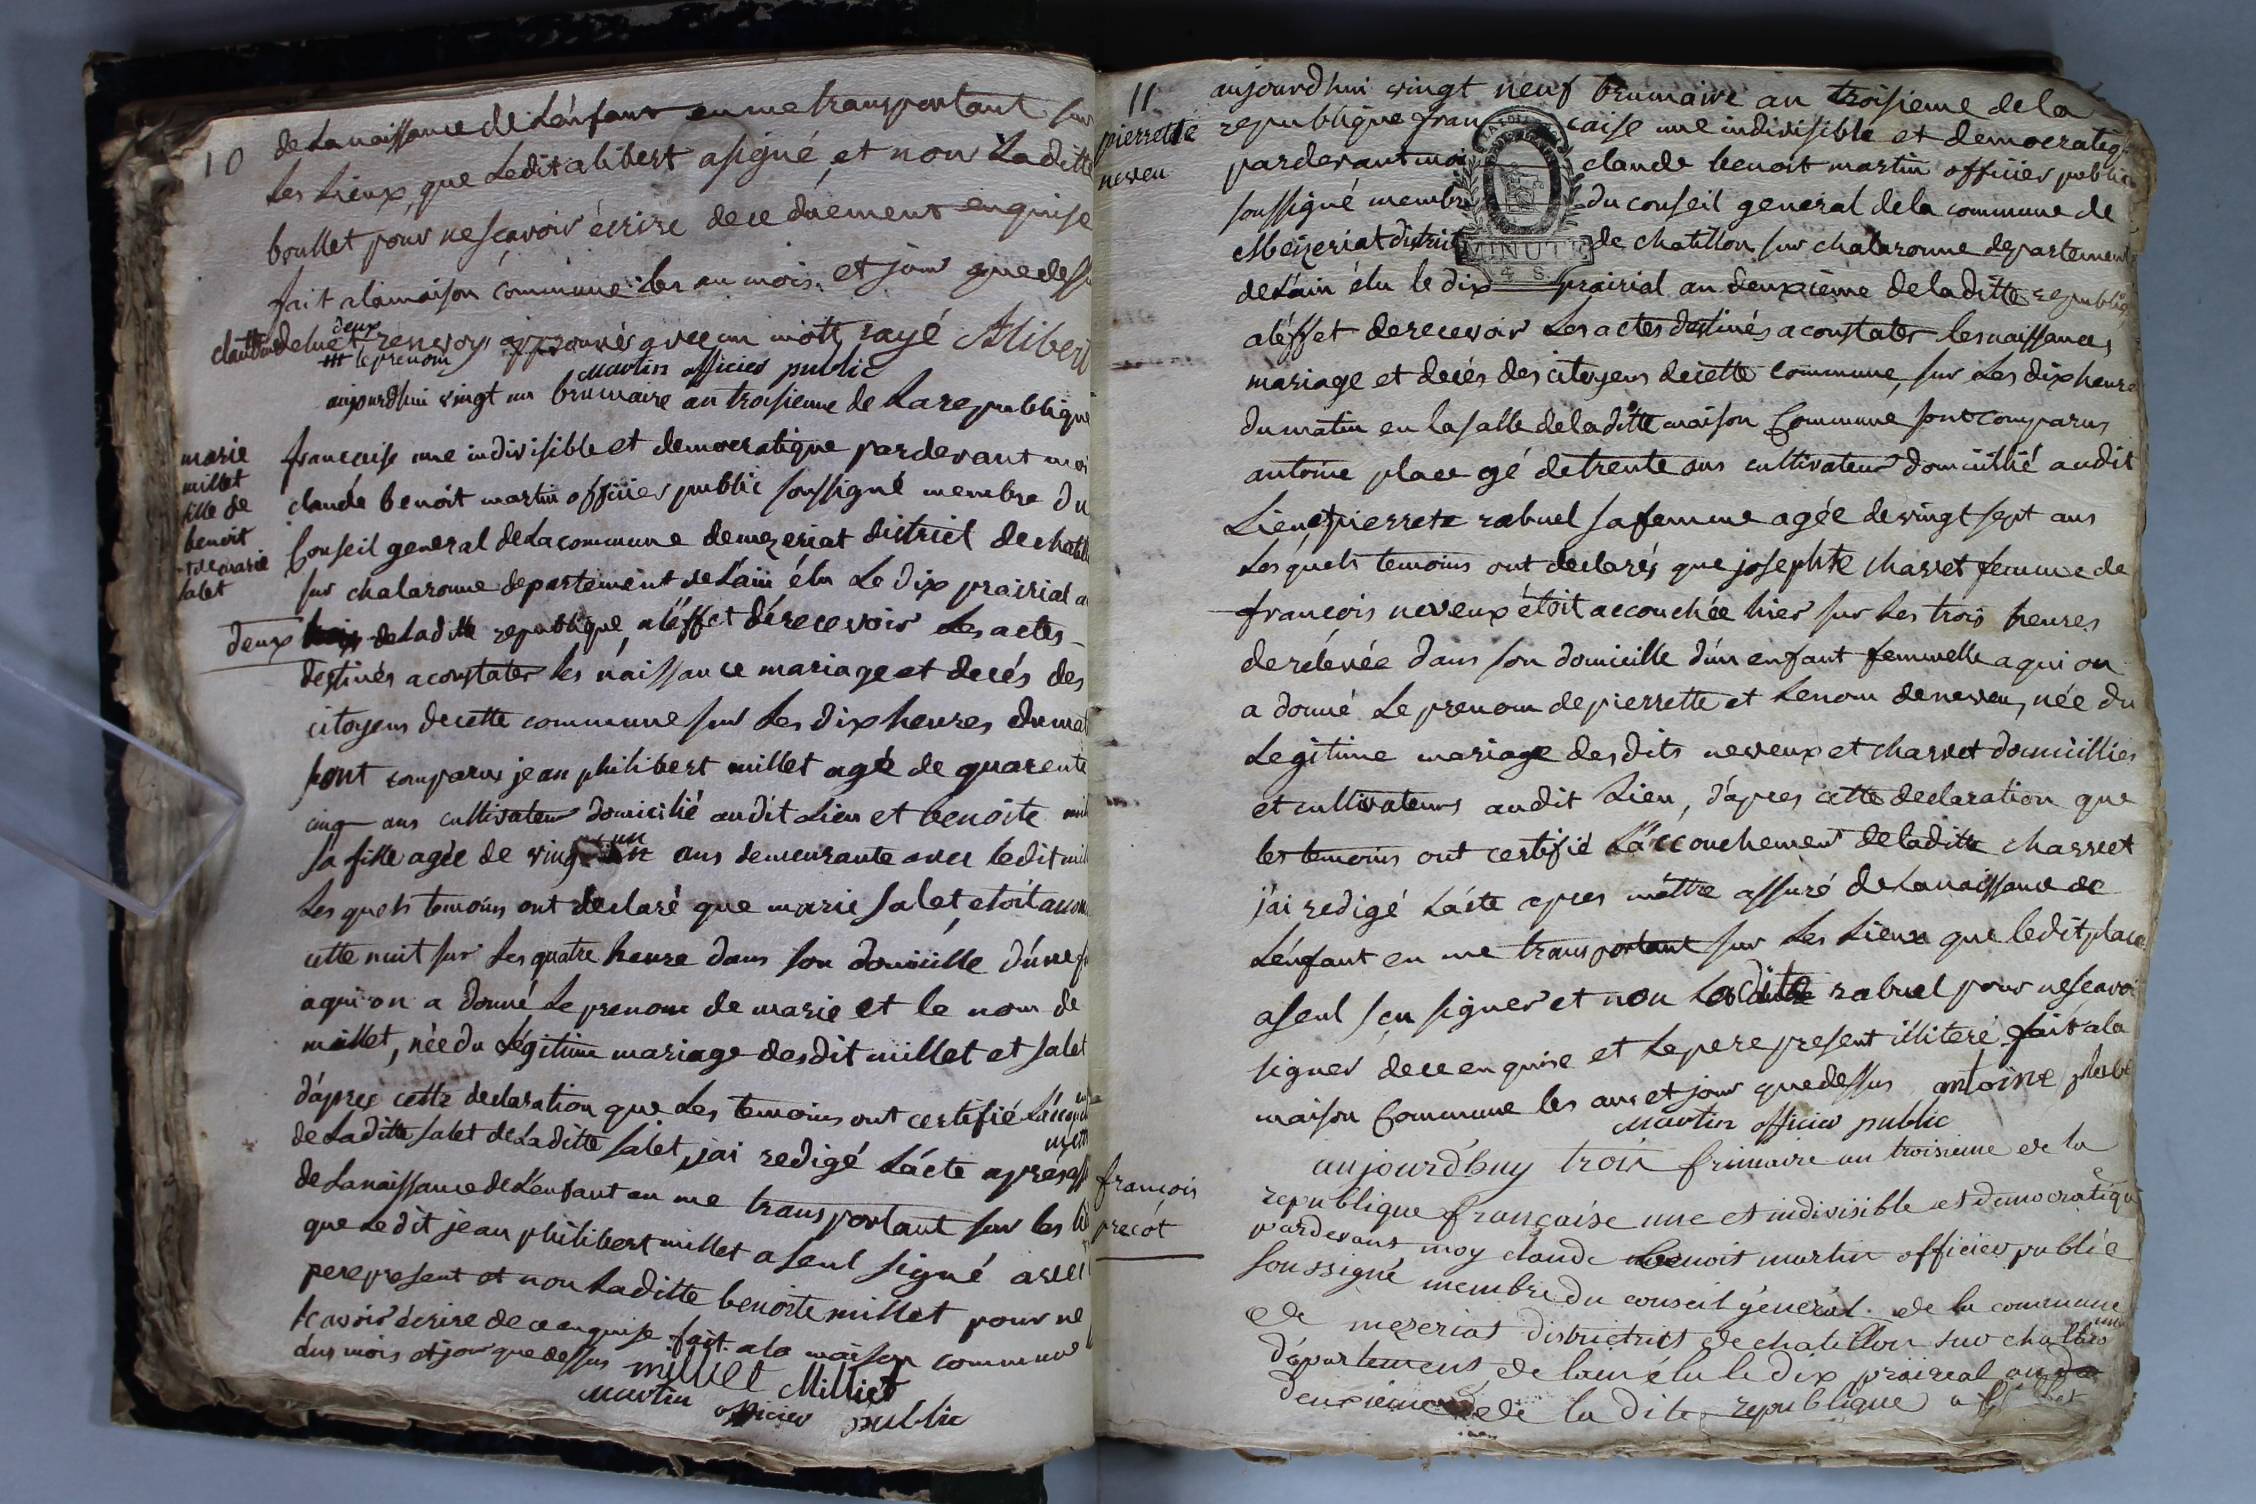 10
de la naissance de l'enfant en me transportant sur
les lieux, que ledit alibert a signé, et non laditte
boullet pour ne sçavoir écrire de ce düement enquise
fait a la maison commune les an mois et jour que dessu
deux
renvoys approuvés avec un mott rayé Alibert
le prenom
Martin officier public
aujourdhui vingt un brumaire an troisieme de la republique
marie
millet
fille de
benoit
et de marie
salet
francaise une indivisible et democratique pardevant moi
claude benoit martin officier public soussigné membre du
Conseil general de la commune de mezeriat district de chatill
sur chalaronne departement de l'ain élu le dix prairial a
deux de la ditte republique, a l'éffet de recevoir les actes
destinés a constater les naissance mariage et decés des
citoyens de cette commune sur les dix heures du mat
sont comparus jean philibert millet agé de quarente
cinq ans cultivateur domicilié audit lieu et benoite mil
un
sa fille agée de vingt ans demeurante avec ledit mill
les quels temoins ont declaré que marie salet, etoit accou
cette nuit sur les quatre heure dans son domicille d'une f
a qui on a donné le prenom de marie et le nom de
millet, née du légitime mariage desdit millet et salet
d'aprec cette declaration que les temoins ont certifié l'accouch
de laditte salet de laditte salet, jai redigé l'acte apres
de la naissance de l'enfant en me transportant sur les li
que ledit jean philibert millet a seul signé avec l
pere present et non laditte benoite millet pour ne
scavoir écrire de ce enquise fait a la maison commune l
dus mois et jour que dessus
millet Milliet
Martin officier public
11
pierrette
neveu
aujourdhui vingt neuf brumaire an troisieme de la
republique francaise une indivisible et democratiq
pardevant moi claude benoit martin officier public
soussigné membre du conseil general de la commune de
Mezeriat district de chatillon sur chalaronne departement
MINUTE
4 S.
de l'ain élu le dix prairial an deuxième de la ditte republiq
a léffet de recevoir les actes destinés a constater les naissances
mariage et decés des citoyens de cette commune, sur les dix heure
du matin en la salle de la ditte maison Commune sont comparus
antoine place gé de trente ans cultivateur domicillié audit
lieu, et pierrete rabuel sa femme agée de vingt sept ans
les quels temoins ont declarés que josephte charvet femme de
francois neveux étoit accouchée hier sur les trois heures
de relevée dans son domicille d'un enfant femmelle a qui on
a donné le prenom de pierrette et le nom de neveu, née du
legitime mariage desdits neveux et charvet domicilliés
et cultivateurs audit lieu, d'apres cette declaration que
les temoins ont certifié l'accouchement de laditte charvet
j'ai redigé l'acte apres m'ettre assuré de la naissance de
l'enfant en me transportant sur les lieux que ledit place
a seul sçu signer et non laditte rabuel pour ne scavoi
signer de ce enquise et le pere present illiteré fait a la
maison Commune les an et jour que dessus antoine place
Martin officier public
francois
precot
aujourd'huy trois frimaire an troisieme de la
republique française une et indivisible et democratique
pardevant moy claude benoit martin officier public
soussigné membre du conseil général de la commune
de mezeriat districtrict de chatillon sur challaro
departement de l'ain élu le dix prairial an
deuxieme de la dite republique a